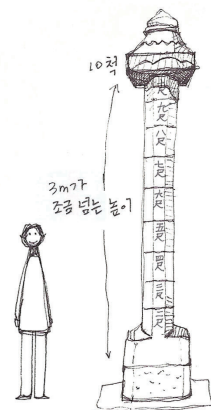 10척
3m가
조금 넘는 높이
尺
九尺
八尺
七尺
六尺
五尺
四尺
三尺
二尺